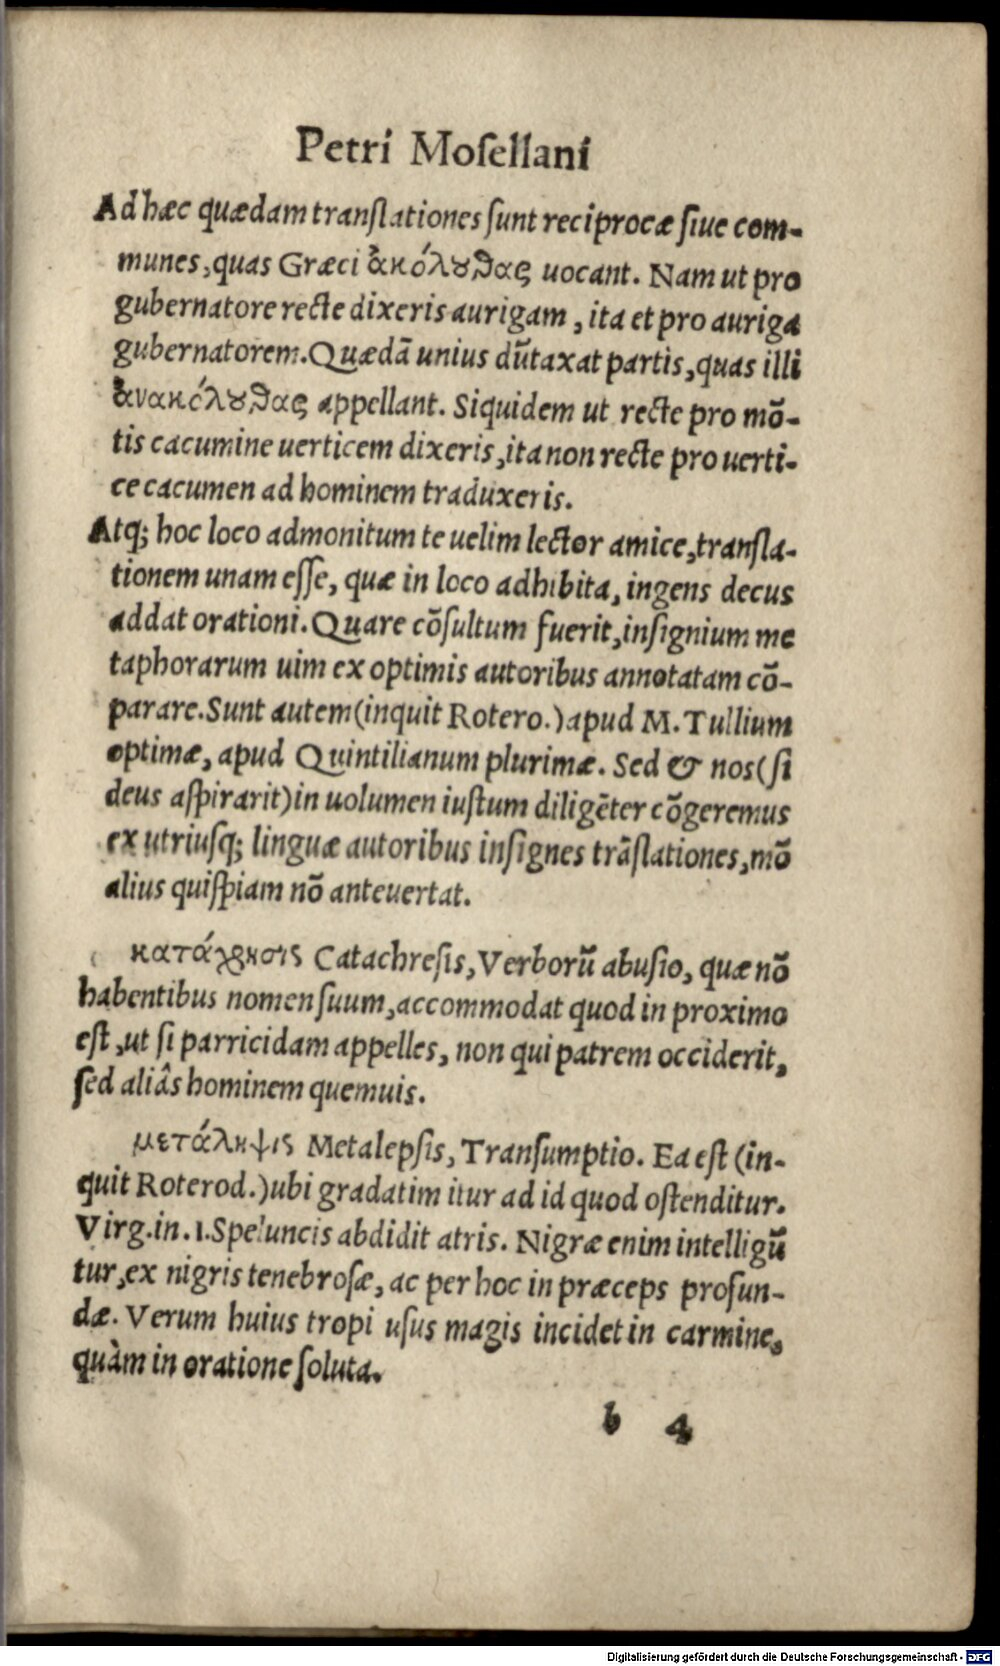 Petri Mosellani
Ad hæc quædam translationes sunt reciprocæ siue com-
munes, quas Græci ἀκόλȣθας uocant. Nam ut pro
gubernatore recte dixeris aurigam, ita et pro auriga
gubernatorem. Quædā unius dūtaxat partis, quas illi
ἀνακόλȣθας appellant. Siquidem ut recte pro mō-
tis cacumine uerticem dixeris, ita non recte pro uerti-
ce cacumen ad hominem traduxeris.
Atq; hoc loco admonitum te uelim lector amice, transla-
tionem unam esse, quæ in loco adhibita, ingens decus
addat orationi. Quare cōsultum fuerit, insignium me
taphorarum uim ex optimis autoribus annotatam cō-
parare. Sunt autem (inquit Rotero.) apud M. Tullium
optimæ, apud Quintilianum plurimæ. Sed & nos (si
deus aspirarit) in uolumen iustum diligēter cōgeremus
ex utriusq; linguæ autoribus insignes trāslationes, mō
alius quispiam nō anteuertat.
κατάχρησις Catachresis, Verborū abusio, quæ nō
habentibus nomen suum, accommodat quod in proximo
est, ut si parricidam appelles, non qui patrem occiderit,
sed aliâs hominem quemuis.
μετάληψις Metalepsis, Transumptio. Ea est (in-
quit Roterod.) ubi gradatim itur ad id quod ostenditur.
Virg. in .1. Speluncis abdidit atris. Nigræ enim intelligū
tur, ex nigris tenebrosæ, ac per hoc in præceps profun-
dæ. Verum huius tropi usus magis incidet in carmine,
quàm in oratione soluta.
b 4
Digitalisierung gefördert durch die Deutsche Forschungsgemeinschaft - DFG